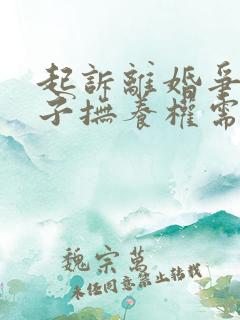 起訴離婚爭
子撫養權需
魏宗萬
未經同意禁止轉載